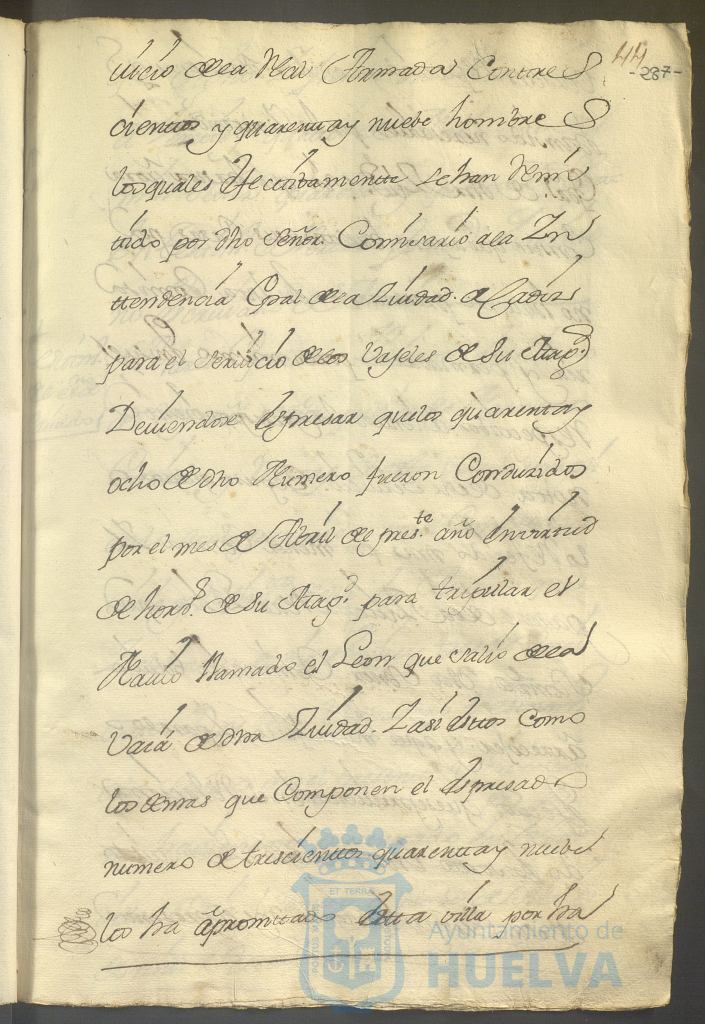 44
-287-
uicio de la Real Armada Con tres
cientos y quarenta y nuebe hombres
los quales efectibamente se han remi
tido por dho Señor Comisario de la In
ttendencia Gral de la Ziudad de Cadiz
para el seruicio de los Vajeles de Su Mag.d
Deuiendose espresar que los quarenta y
ocho de dho Numero fueron Conduzidos
por el mes de Abril de pres.te año en virtud
de hord.n de Su Mag.d para tripular el
Nauio llamado el Leon que salio de la
Vaia de dha Ziudad. Y asi estos como
los demas que Componen el espresado
numero de trescientos quarenta y nuebe
los ha apromttado esta villa por ha
ET TERRA
Ayuntamiento de
HUELVA